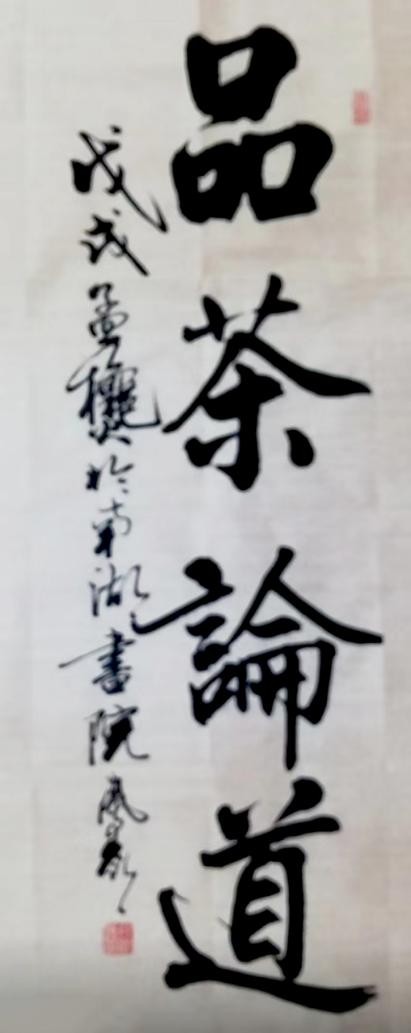 品茶論道
戊戌孟於南湖書院